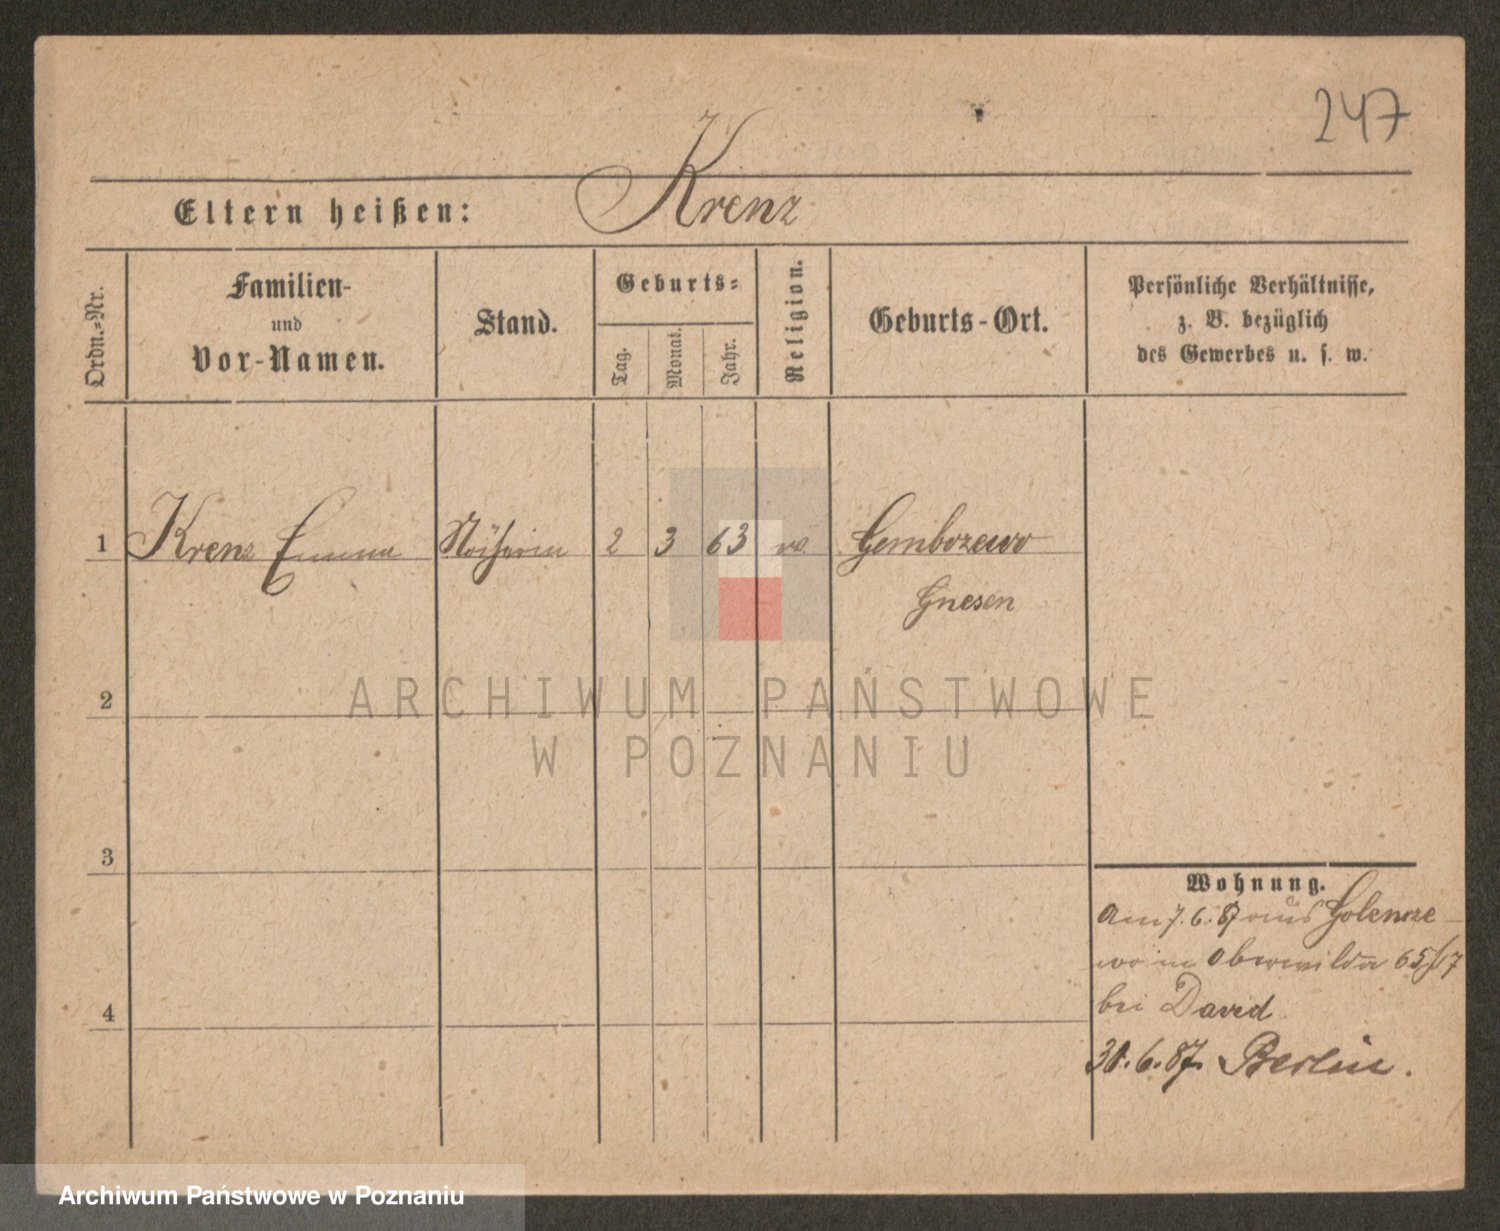 247
Eltern heißen: Krenz
Ordn.-Nr.
Familien-
und
Vor-Namen.
Stand.
Geburts-
Tag.
Monat.
Jahr.
Religion.
Geburts-Ort.
Persönliche Verhältnisse,
z. B. bezüglich
des Gewerbes u. s. w.
1 Krenz Emma Näherin 2 3 63 Gembozewo
Gnesen
2
ARCHIWUM PAŃSTWOWE
W POZNANIU
3
Wohnung.
am 7.6.87 aus
in Oberwilda 65/17
bei David
30.6.87. Berlin.
4
Archiwum Państwowe w Poznaniu